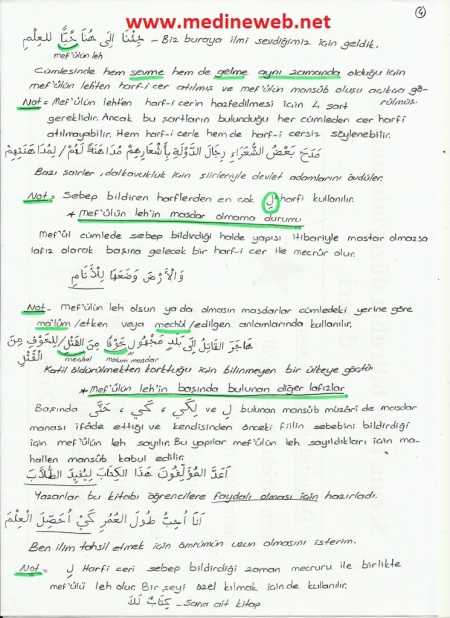 www.medineweb.net
4
جِئْنَا إِلَى هُنَا حُبًّا لِلْعِلْمِ – Biz buraya ilmi sevdiğimiz için geldik.
mef'ûlün leh
Cümlesinde hem sevme hem de gelme aynı zamanda olduğu için
mef'ûlün leh'ten harf-i cer atılmış ve mef'ûlün mansûb oluşu açıkca gö-
rülmüş.
Not = Mef'ûlün leh'ten harf-i cerin hazfedilmesi için 4 şart
gereklidir. Ancak bu şartların bulunduğu her cümleden cer harfi
atılmayabilir. Hem harf-i cerle hem de harf-i cersiz söylenebilir.
مَدَحَ بَعْضُ الشُّعَرَاءِ رِجَالَ الدَّوْلَةِ بِأَشْعَارِهِمْ مُدَاهَنَةً لَهُمْ / لِمُدَاهَنَتِهِمْ
Bazı şairler, dalkavukluk için şiirleriyle devlet adamlarını övdüler.
Not = Sebep bildiren harflerden en çok لِ harfi kullanılır.
* Mef'ûlün leh'in masdar olmama durumu
Mef'ûl cümlede sebep bildirdiği halde yapısı itibariyle mastar olmazsa
lafız olarak başına gelecek bir harf-i cer ile mecrûr olur.
وَالْأَرْضَ وَضَعَهَا لِلْأَنَامِ
Not - Mef'ûlün leh olsun ya da olmasın masdarlar cümledeki yerine göre
ma'lûm / etken veya mechûl / edilgen anlamlarında kullanılır.
هَاجَرَ القَاتِلُ إِلَى بَلَدٍ مَجْهُولٍ خَوْفًا مِنَ القَتْلِ / لِلْخَوْفِ مِنَ
القَتْلِ
mechul malum masdar
Katil öldürülmekten korktuğu için bilinmeyen bir ülkeye göçtü
* Mef'ûlün leh'in başında bulunan diğer lafızlar
Başında حَتَّى ، كَيْ ، لِكَيْ ve لِ bulunan mansûb müzâri de masdar
manası ifâde ettiği ve kendisinden önceki fiilin sebebini bildirdiği
için mef'ûlün leh sayılır. Bu yapılar mef'ûlün leh sayıldıkları için ma-
hallen mansûb kabul edilir.
أَعَدَّ المُؤَلِّفُونَ هَذَا الكِتَابَ لِيُفِيدَ الطُّلَّابَ
Yazarlar bu kitabı öğrencilere faydalı olması için hazırladı.
أَنَا أُحِبُّ طُولَ العُمُرِ كَيْ أُحَصِّلَ العِلْمَ
Ben ilim tahsil etmek için ömrümün uzun olmasını isterim.
Not = لِ Harfi ceri sebep bildirdiği zaman mecruru ile birlikte
mef'ûlü leh olur. Bir şeyi özel kılmak için de kullanılır.
كِتَابٌ لَكَ – Sana ait kitap